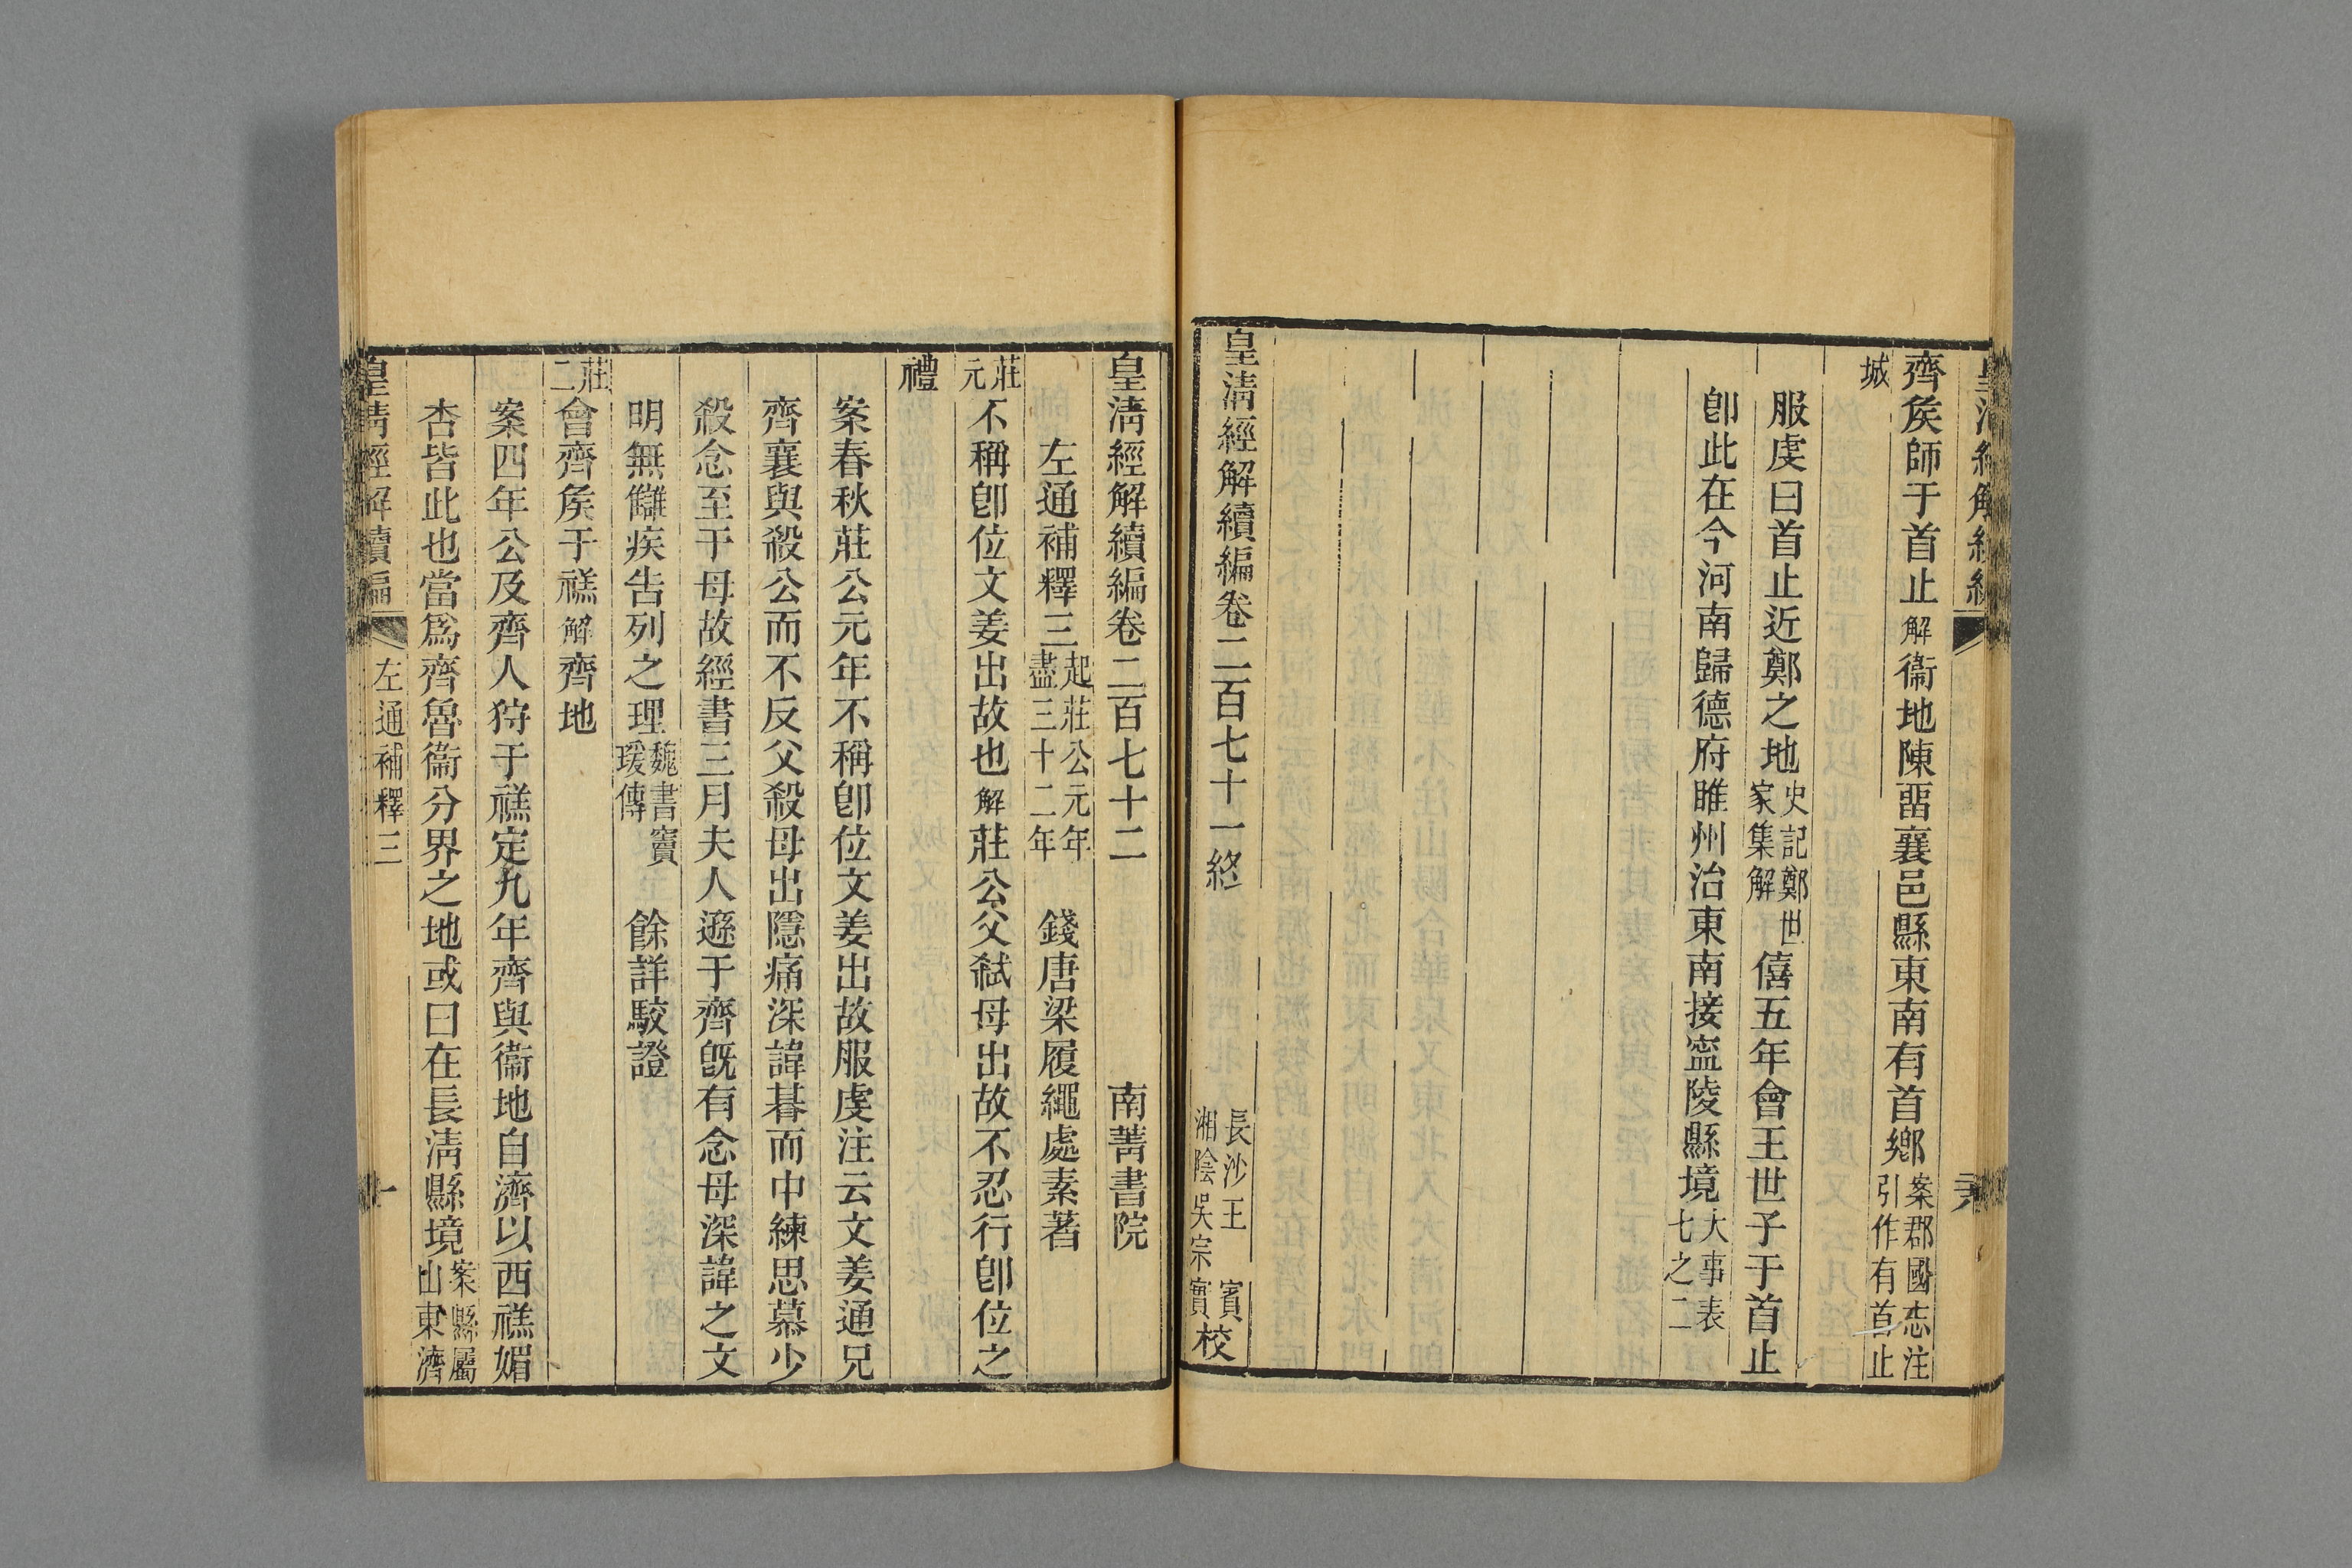 齊矦師于首止解衞地陳畱襄邑縣東南有首鄉案郡國志注引作有首止
城
服虔曰首止近鄭之地史記鄭世家集解僖五年會王世子于首止
卽此在今河南歸德府睢州治東南接寍陵縣境大事表七之二
皇淸經解續編卷二百七十一終
長沙王賓
湘陰吳宗實校
皇淸經解續編卷二百七十二 南菁書院
左通補釋三起莊公元年盡三十二年 錢唐梁履繩處素著
莊元不稱卽位文姜出故也解莊公父弑母出故不忍行卽位之
禮
案春秋莊公元年不稱卽位文姜出故服虔注云文姜通兄
齊襄與殺公而不反父殺母出隱痛深諱朞而中練思慕少
殺念至于母故經書三月夫人遜于齊旣有念母深諱之文
明無讎疾告列之理魏書竇瑗傳 餘詳駁證
莊二會齊矦于禚解齊地
案四年公及齊人狩于禚定九年齊與衞地自濟以西禚媚
杏皆此也當爲齊魯衞分界之地或曰在長淸縣境案縣屬山東濟
皇淸經解續編 左通補釋三 一